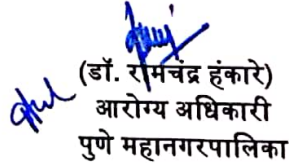 (डॉ. रामचंद्र हंकारे)
आरोग्य अधिकारी
पुणे महानगरपालिका